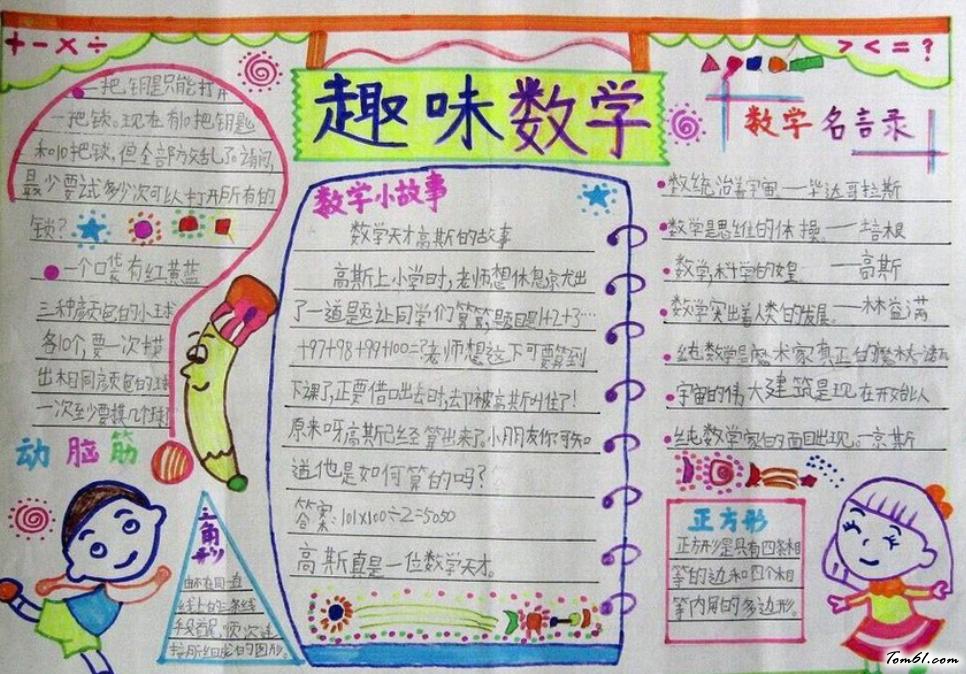 + - × ÷
> < = ?
趣味数学
一把钥匙只能打开
一把锁。现在有10把钥匙
和10把锁,但全部放乱了。请问,
最少要试多少次可以打开所有的
锁?
一个口袋有红黄蓝
三种颜色的小球
各10个,要一次摸
出相同颜色的球
一次至少要摸几个球?
动脑筋
三角形
由不在同一直
线上的三条线
段首尾顺次连
接所组成的图形。
数学小故事
数学天才高斯的故事
高斯上小学时,老师想休息就出
了一道题让同学们算算,题目是1+2+3…
+97+98+99+100=?老师想这下可要算到
下课了,正要借口出去时,却被高斯叫住了!
原来呀,高斯已经算出来了。小朋友你可知
道他是如何算的吗?
答案:101×100÷2=5050
高斯真是一位数学天才。
数学名言录
数统治着宇宙。——毕达哥拉斯
数学是思维的体操。——培根
数学,科学的女皇。——高斯
数学突出着人类的发展。
纯数学是魔术家真正的魔杖
宇宙的伟大建筑是现在开始以
纯数学家的面目出现。—京斯
正方形
正方形是具有四条相
等的边和四个相
等内角的多边形。
Tom61.com